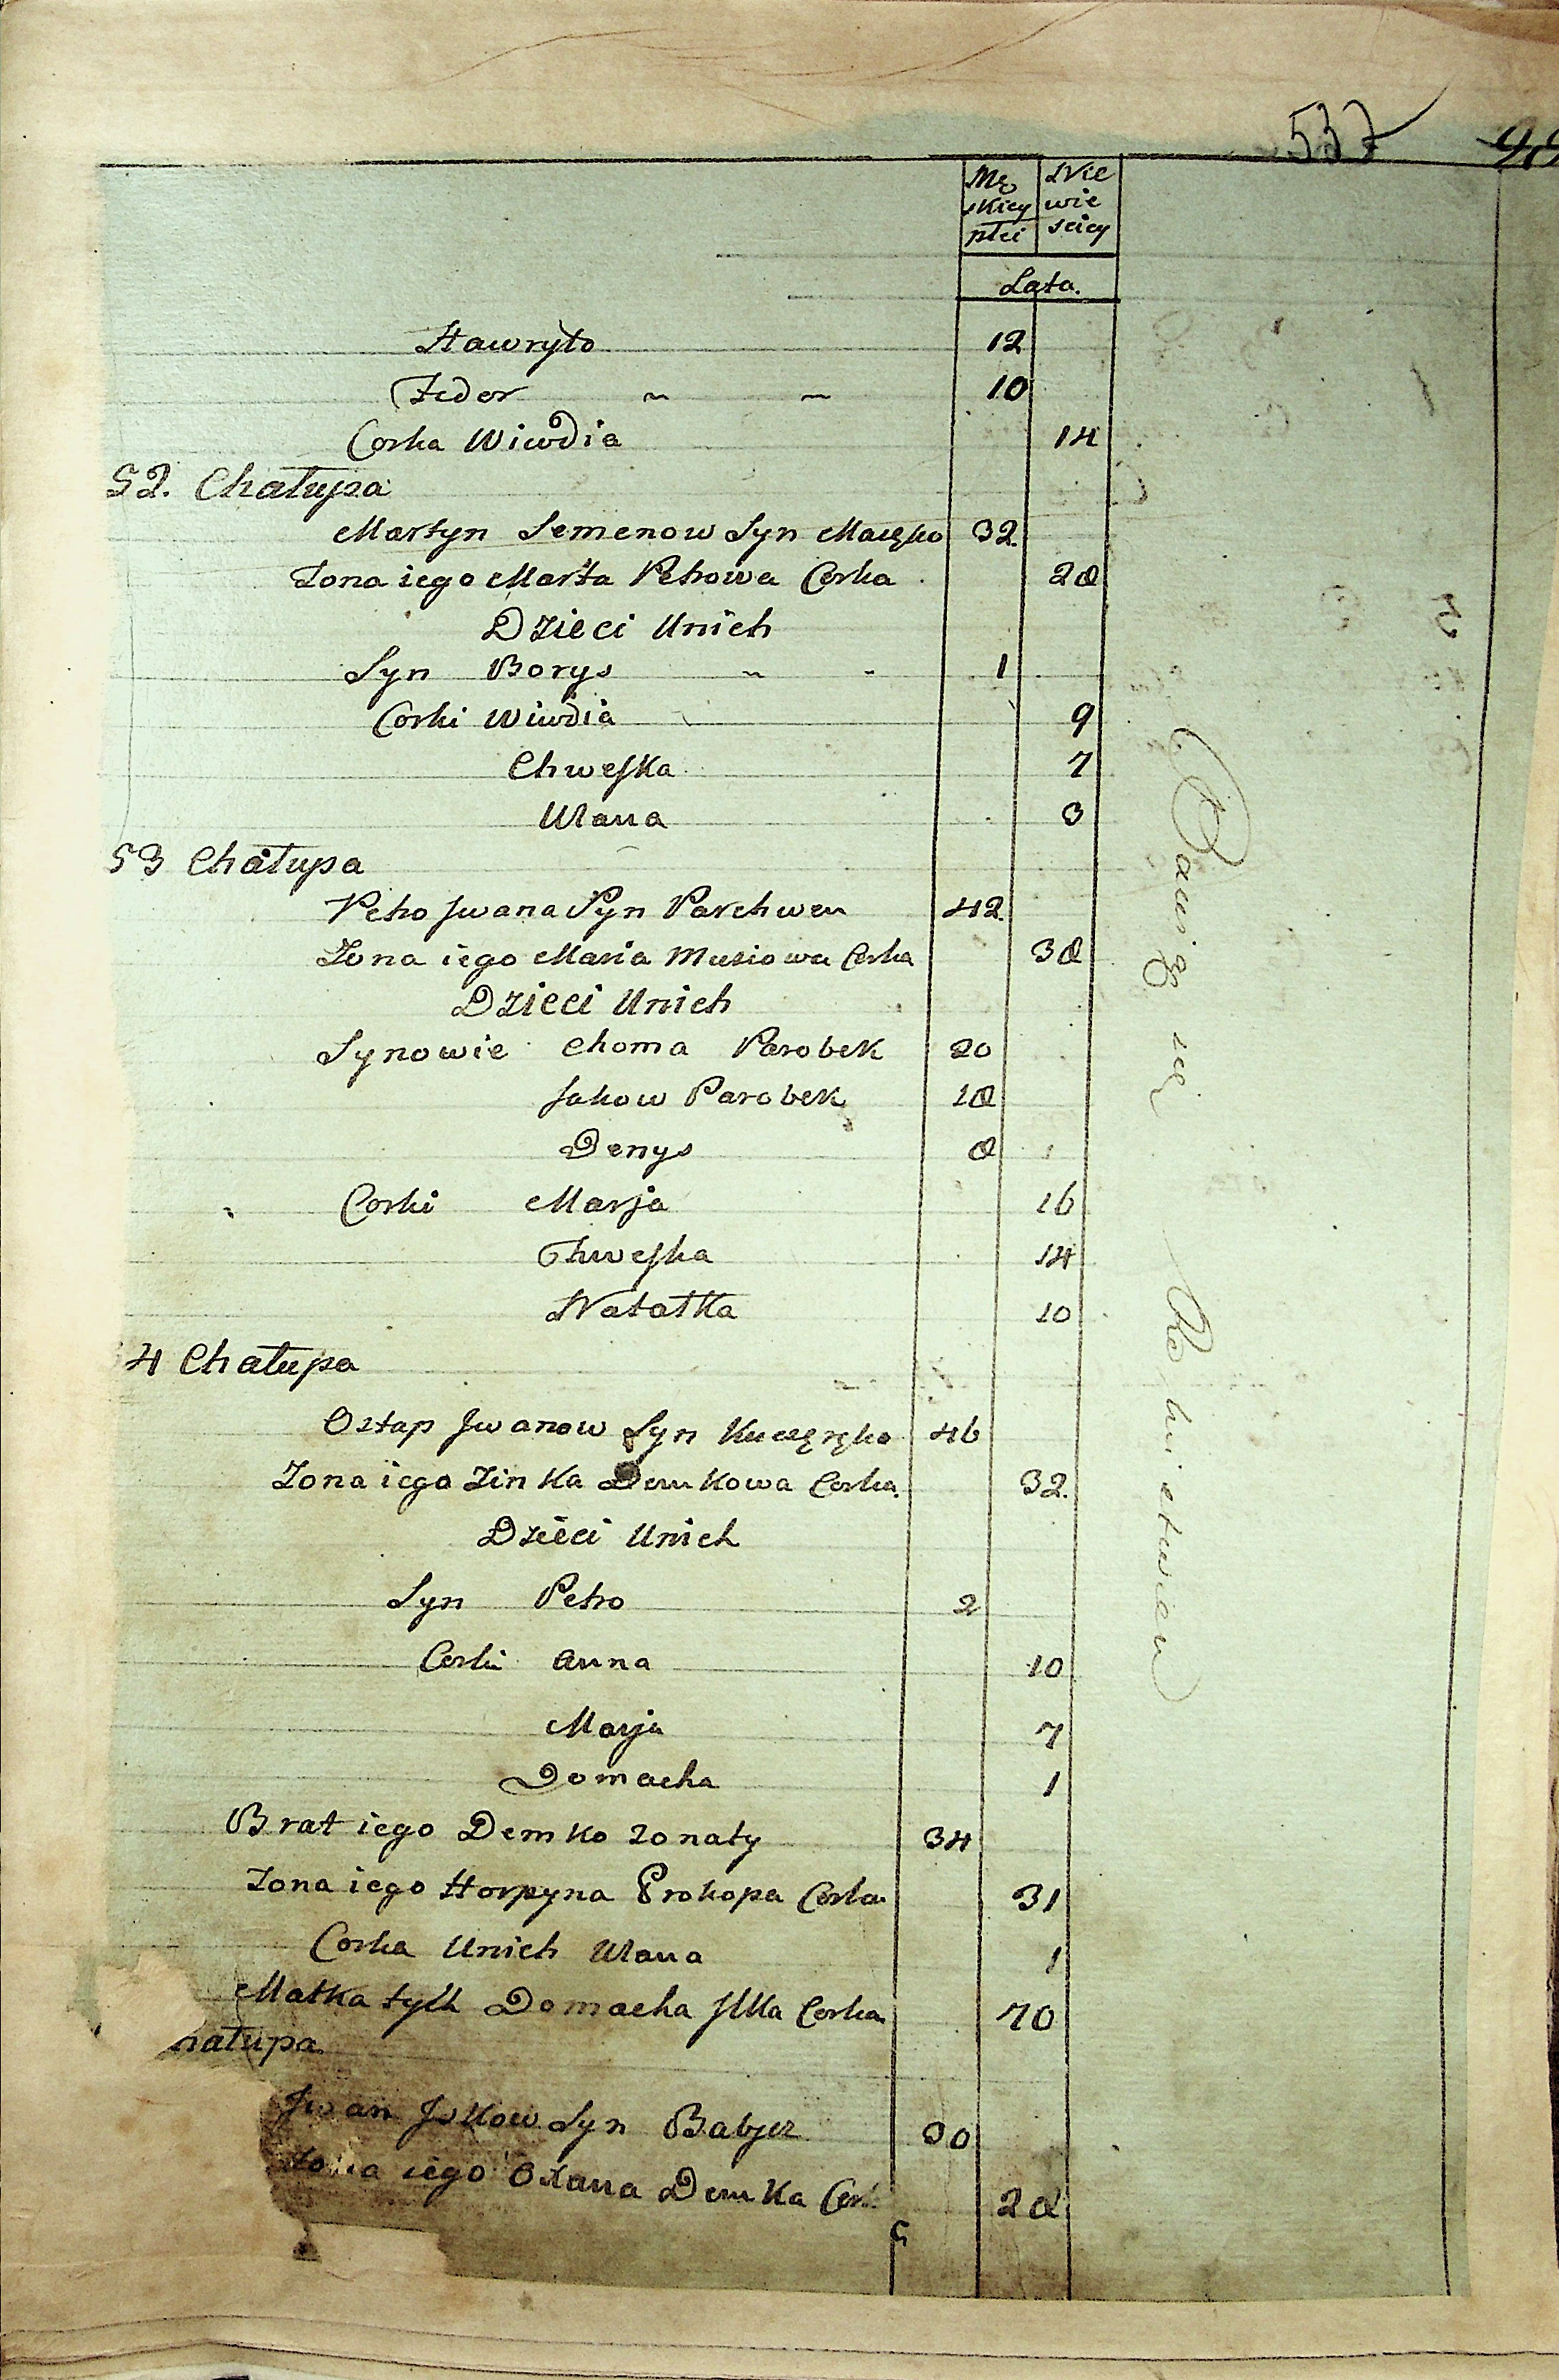 537
Mę skiey płci
Nie wie sciey
Lata.
Hawryło 12
Fedor ~ ~ 10
Corka Wiwdia 14
52. Chałupa
Martyn Semenow Syn 32.
Zona iego Marta Petrowa Corka 28
Dzieci Unich
Syn Borys ~ - 1
Corki Wiwdia 9
Chweska 7
Ulana 3
53 Chałupa
Petro Jwana Syn Parchwen 42.
Zona iego Maria Musiowa Corka 38
Dzieci Unich
Synowie Choma Parobek 20
Jakow Parobek 18
Denys 8
Corki Marja 16
Chweska 14
Natałka 10
4 Chałupa
Ostap Jwanow Syn 46
Zona iego Zinka Demkowa Corka 32.
Dzieci Unich
Syn Petro 2
Corki Anna 10
Marja 7
Domacha 1
Brat iego Demko zonaty 34
Zona iego Horpyna Prokopa Corka 31
Corka Unich Ulana 1
Matka tych Domacha Jlka Corka 70
hałupa
Jwan Syn 30
Zona iego Oxana Demka Cor 28